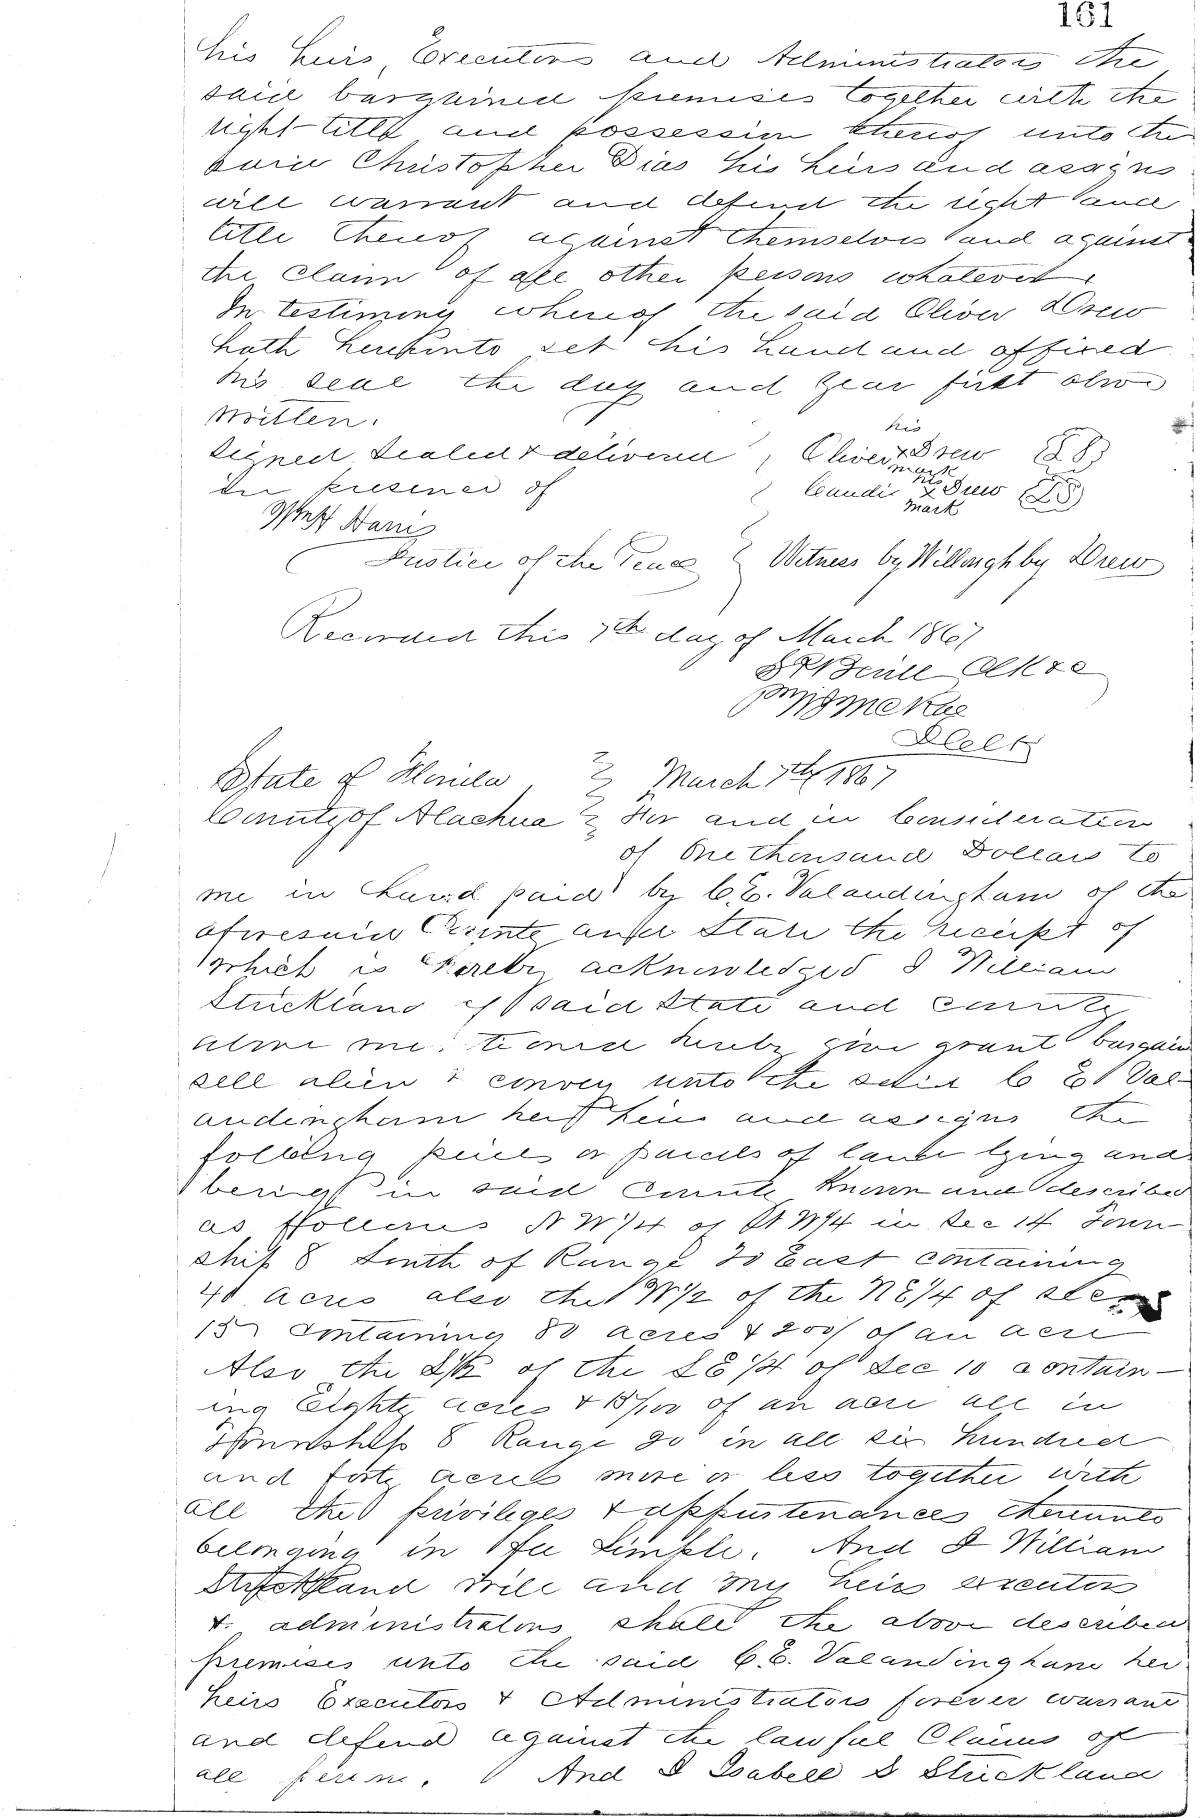 161
his heirs, Executors and Administrators the
said bargained premises together with the
right title and possession thereof unto the
said Christopher Dias his heirs and assigns
will warrant and defend the right and
title thereof against themselves and against
the claim of all other persons whatever.
In testimony whereof the said Oliver Drew
hath hereunto set his hand and affixed
his seal the day and year first above
written.
Signed Sealed & delivered
in presence of
his
Oliver x Drew LS
mark
his
Candis x Drew LS
mark
Harris
Justice of the Peace
Witness by Willoughby Drew
Recorded this 7th day of March 1867
Clk
Clerk
State of Florida March 7th 1867
County of Alachua For and in Consideration
of One thousand Dollars to
me in hand paid by C. E. Valandingham of the
aforesaid County and State the receipt of
which is hereby acknowledged I William
Strickland of said State and county
above mentioned hereby give grant bargain
sell alien & convey unto the said C E Val-
andingham her heirs and assigns the
following pieces or parcels of land lying and
being in said County Known and described
as follows N W 1/4 of W 1/4 in Sec 14 Town-
ship 8 South of Range 20 East containing
40 acres also the W 1/2 of the N E 1/4 of Sec
15 containing 80 acres & of an acre
Also the S 1/2 of the S E 1/4 of Sec 10 contain-
ing Eighty acres & 15/100 of an acre all in
Township 8 Range 20 in all six hundred
and forty acres more or less together with
all the privileges & appurtenances thereunto
belonging in fee Simple. And I William
Strickland will and my heirs executors
& administrators shall the above described
premises unto the said C. E. Valandingham her
heirs Executors & Administrators forever warrant
and defend against the lawful Claims of
all persons. And I Isabell S Strickland